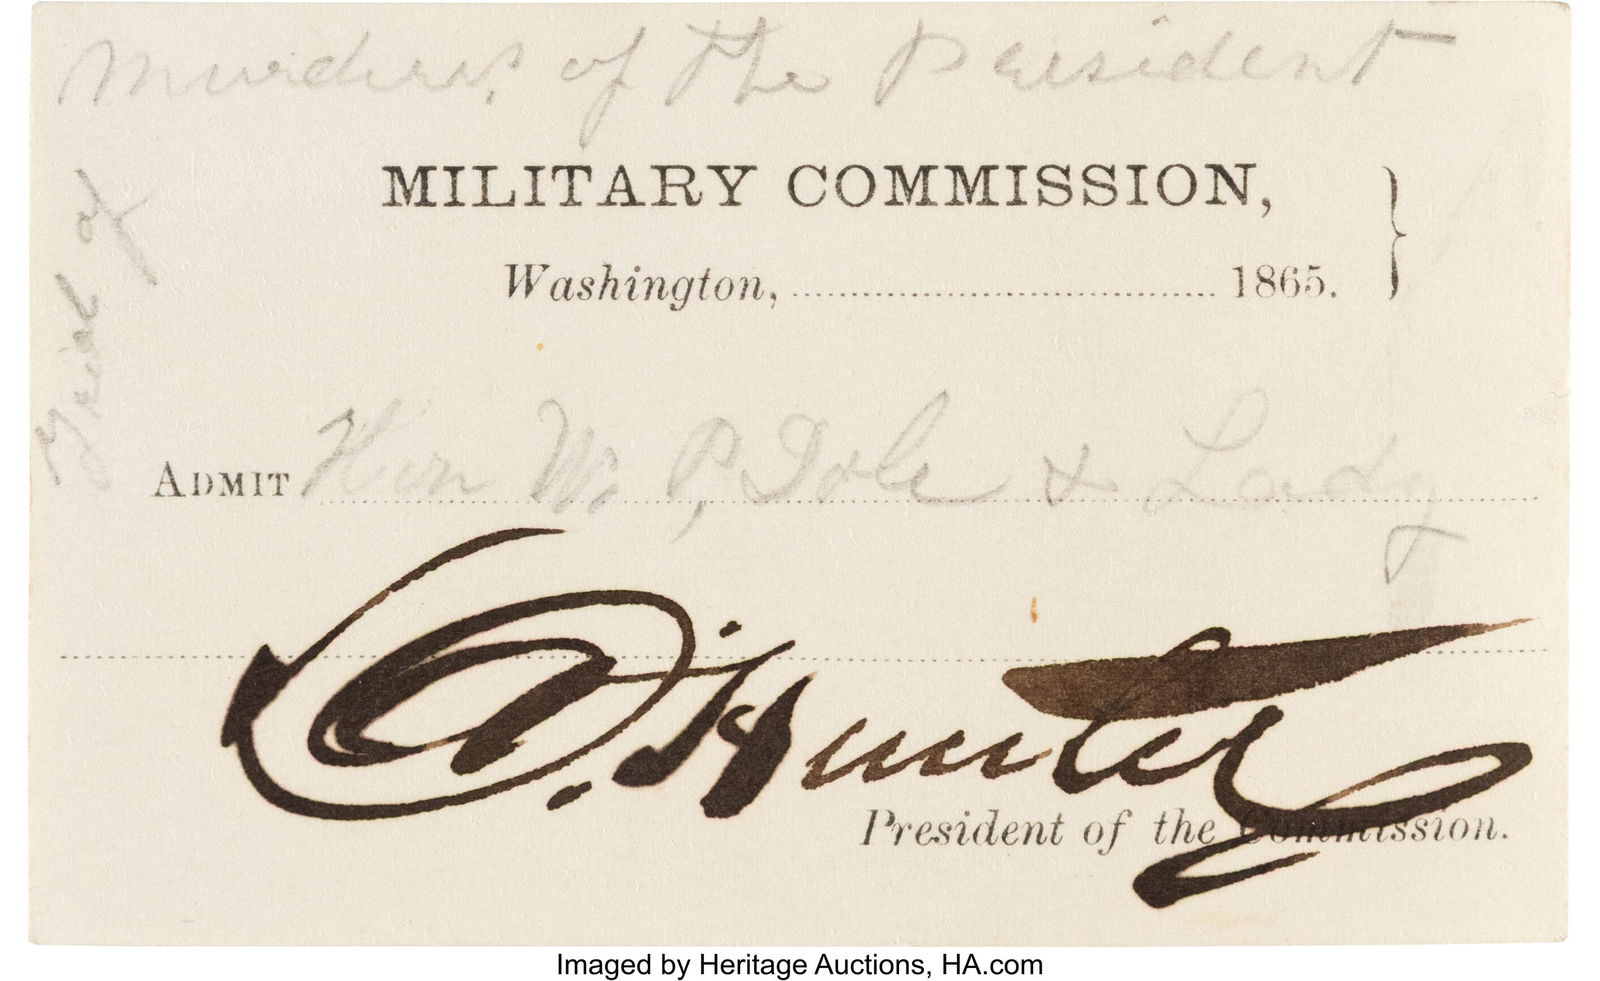 Trial of
Murders of the President
MILITARY COMMISSION,
Washington, 1865.
ADMIT Hon W. P, Dole & Lady
D. Hunter
President of the Commission.
Imaged by Heritage Auctions, HA.com